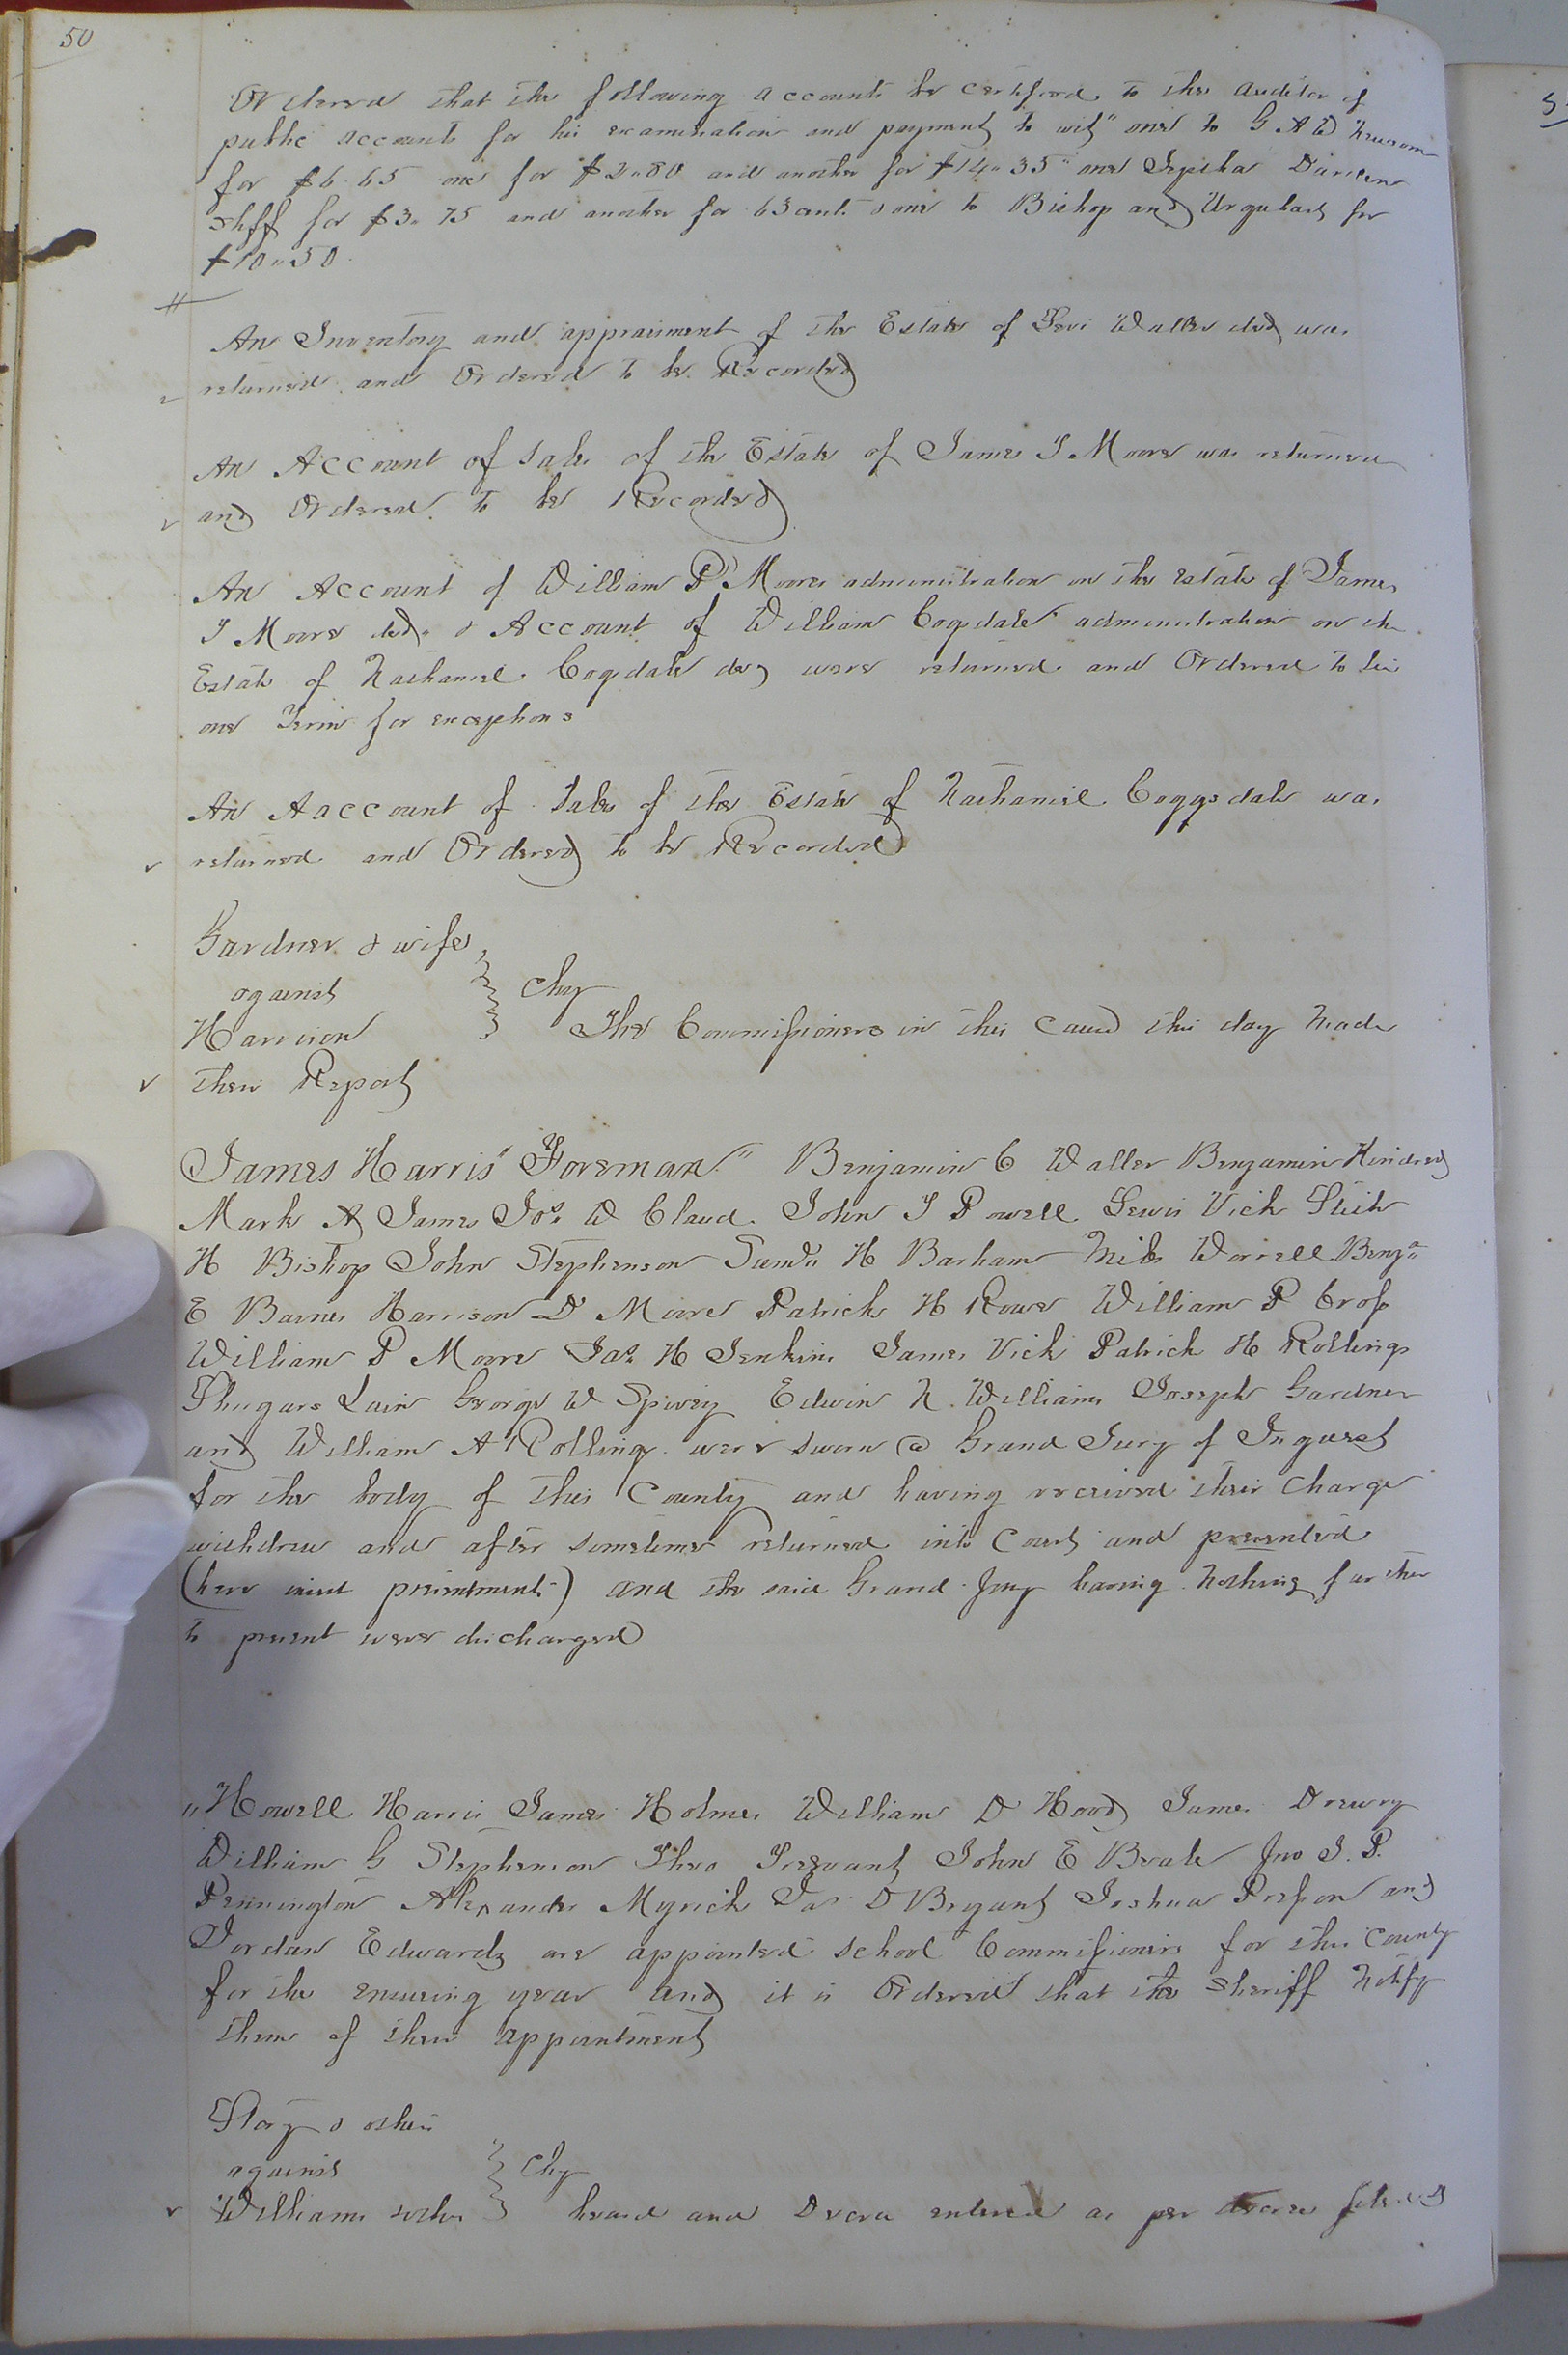 50
Ordered that the following accounts be certified to the Auditor of
public accounts for his examination and payment to wit" one to G A W Newsom
for $6.65 one for $2"80 and another for $14"35" one Jeptha Darden
Shff for $3"75 and another for 63 cents & one to Bishop and Urquhart for
$10"50
An Inventory and appraisment of the Estate of Levi Waller decd was
returned and Ordered to be Recorded
An Account of Sales of the Estate of James T Moore was returned
and Ordered to be Recorded
An Account of William P Moores administration on the Estate of James
T Moore decd & Account of William Cogsdale administration on the
Estate of Nathaniel Cogsdale decd were returned and Ordered to lie
one Term for exceptions
An Aaccount of Sales of the Estate of Nathaniel Coggsdale was
returned and Ordered to be Recorded
Gardner & wife
against
Chy
Harrison The Commissioners in this cause this day made
their Report
James Harris "Foreman" Benjamin C Waller Benjamin Kindred
Mark A James Jos. W Claud John T Powell Lewis Vick Stith
H Bishop John Stephenson H Barham Miles Worrell Benja
E Barnes Harrison D Moore Patrick H Rowe William P Cross
William P Moore Jas H Jenkins James Vick Patrick H Rollings
Lain George W Spivey Edwin N. Williams Joseph Gardner
and William A Rollings were sworn a Grand Jury of Inquest
for the body of this County and having received their charge
withdrew and after sometime returned into Court and presented
(here insert presentments) and the said Grand Jury having nothing farther
to present were discharged
"Howell Harris James Holmes William D Hood James Drewry
William G Stephenson Theo Trezvant John E Beale Jno J. P.
Pennington Alexander Myrick Jas D Bryant Joshua Pretson and
Jordan Edwards are appointed School Commissioners for this County
for the ensuing year and it is Ordered that the Sheriff notify
them of their appointment
Story & others
against
Chy
Williams & others heard and Decree entered as per decree filed